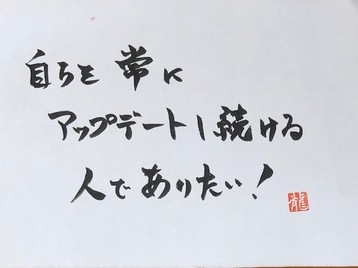 自らを常に
アップデートし続ける
人でありたい!
龍